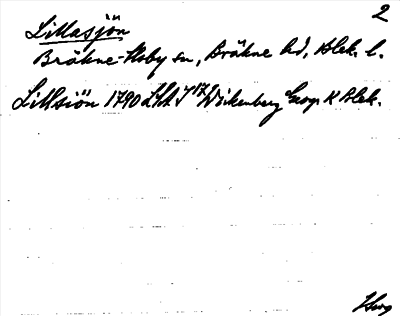 2
Lillasjön
Bräkne-Hoby sn, Bräkne hd, Blek. l.
Lillsjön 1790 LSA J 12 Wickenberg Geogr. K Blek.